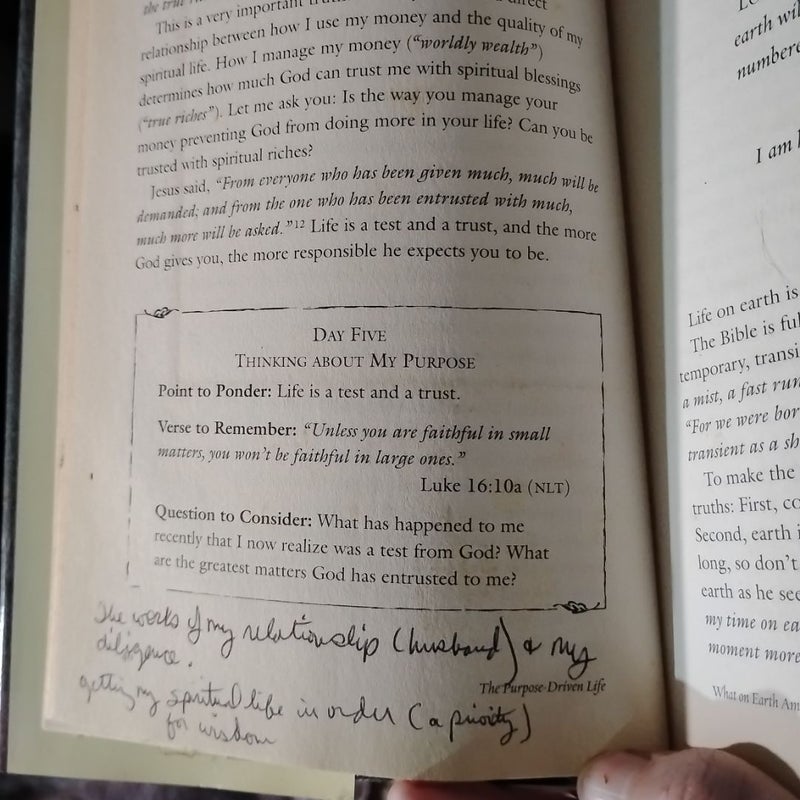 the true
This is a very important
relationship between how I use my money and the quality of my
spiritual life. How I manage my money (“worldly wealth”)
determines how much God can trust me with spiritual blessings
(“true riches”). Let me ask you: Is the way you manage your
money preventing God from doing more in your life? Can you be
trusted with spiritual riches?
Jesus said, “From everyone who has been given much, much will be
demanded; and from the one who has been entrusted with much,
much more will be asked.”12 Life is a test and a trust, and the more
God gives you, the more responsible he expects you to be.
DAY FIVE
THINKING ABOUT MY PURPOSE
Point to Ponder: Life is a test and a trust.
Verse to Remember: “Unless you are faithful in small
matters, you won’t be faithful in large ones.”
Luke 16:10a (NLT)
Question to Consider: What has happened to me
recently that I now realize was a test from God? What
are the greatest matters God has entrusted to me?
The works of my relationship (husband) & my
diligence.
The Purpose-Driven Life
getting my spiritual life in order (a priority)
for wisdom
earth
numbere
I am
Life on earth is
The Bible is ful
temporary, transi
a mist, a fast run
“For we were bor
transient as a sh
To make the
truths: First, co
Second, earth i
long, so don’t
earth as he see
my time on ea
moment more
What on Earth Am